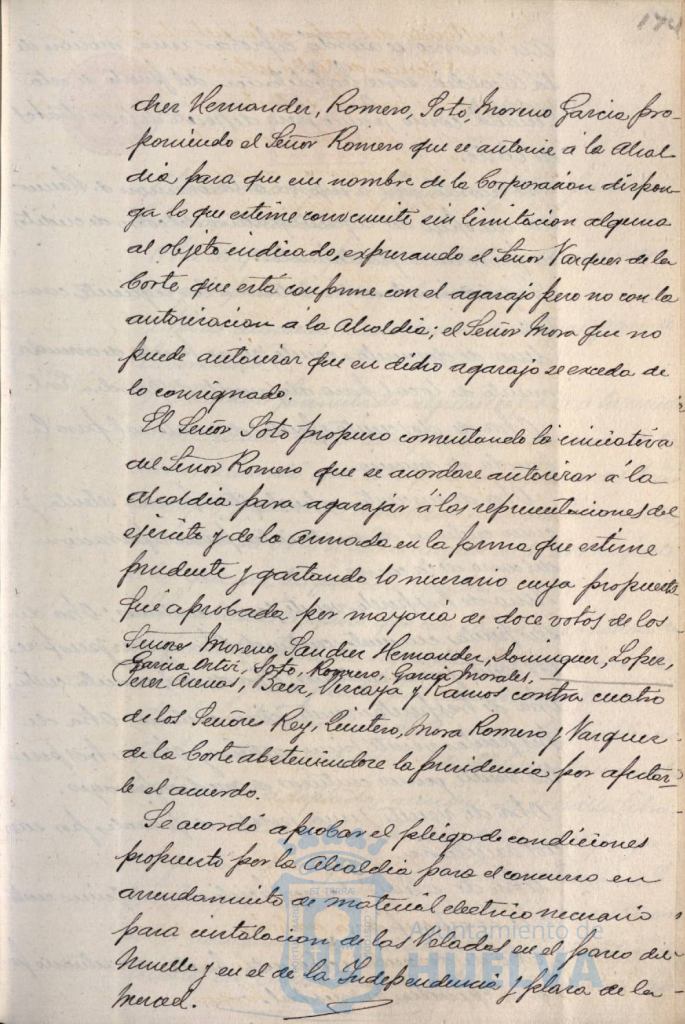 174
chez Hernandez, Romero, Soto, Moreno Garcia pro-
poniendo el Señor Romero que se autorice á la Alcal
dia para que en nombre de la Corporación dispon-
ga lo que estime conveniente sin limitacion alguna
al objeto indicado, expresando el Señor Vazquez de la
Corte que está conforme con el agasajo pero no con la
autorizacion á la Alcaldia; el Señor Mora que no
puede autorizar que en dicho agasajo se exceda de
lo consignado.
El Señor Soto propuso comentando la iniciativa
del Señor Romero que se acordase autorizar á la
alcaldia para agasajar á las representaciones del
ejército y de la Armada en la forma que estime
prudente y gastando lo necesario cuya propuesta
fué aprobada por mayoria de doce votos de los
Señores Moreno, Sanchez Hernandez, Dominguez, Lopez,
Garcia Ortiz, Soto, Romero, Garcia Morales,
Perez Arenas, Baez, Vizcaya y Ramos contra cuatro
de los Señores Rey, Quintero, Mora Romero y Vazquez
de la Corte absteniendose la presidencia por afectar-
le el acuerdo.
Se acordó aprobar el pliego de condiciones
propuesto por la Alcaldia para el concurso en
arrendamiento de material electrico necesario
para instalacion de las Veladas en el paseo del
Muelle y en el de la Independencia y plaza de la
Merced.
Ayuntamiento de
HUELVA